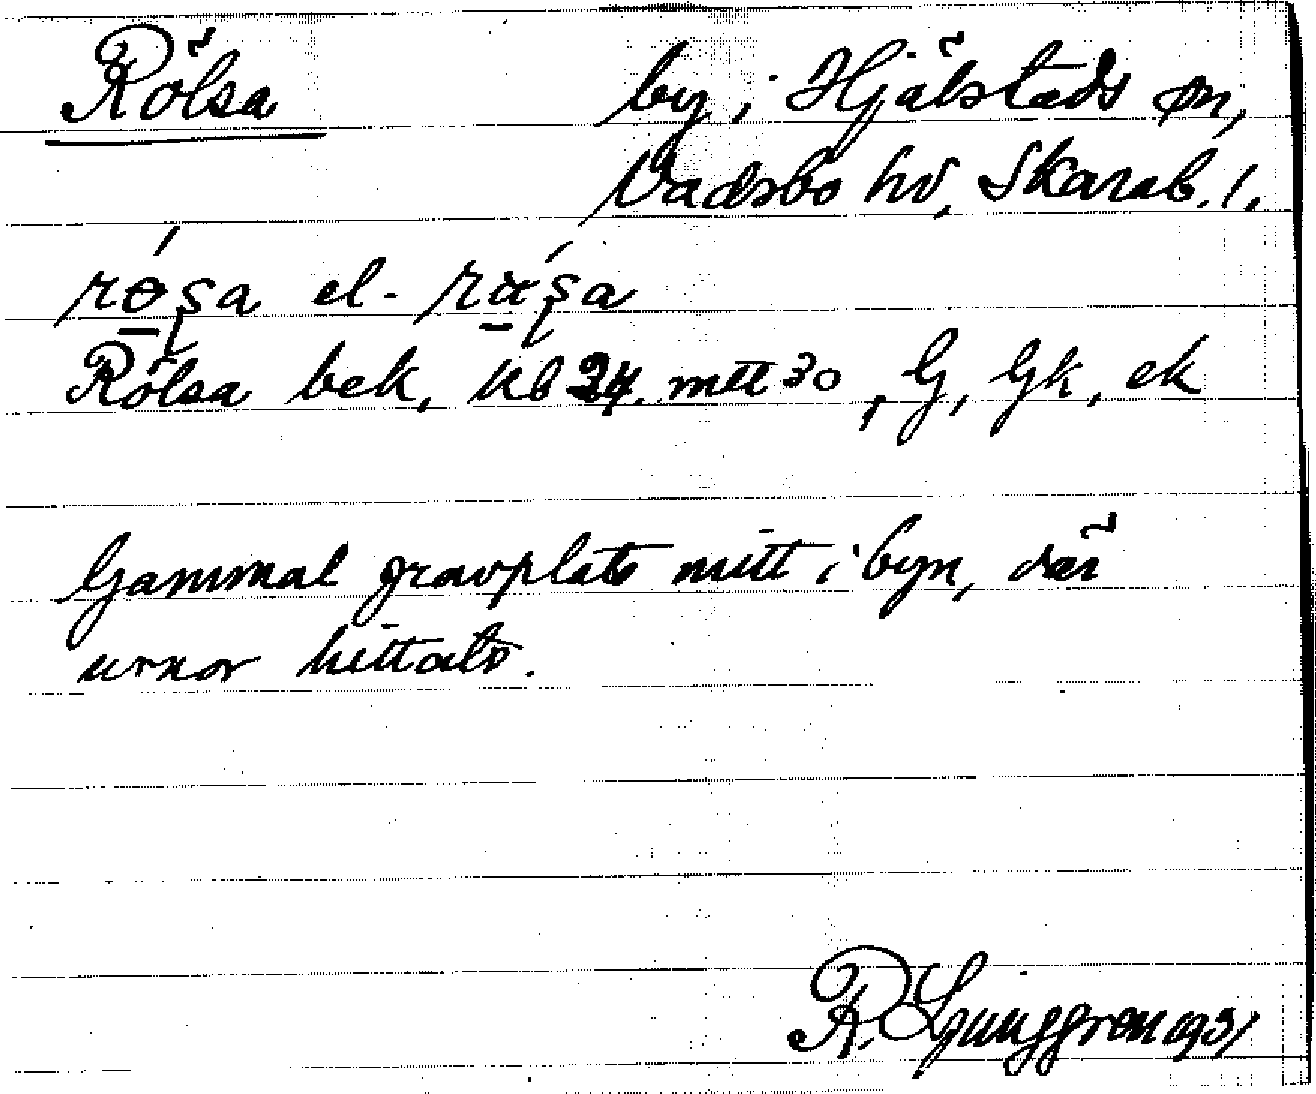 Rölsa by i Hjälstads sn,
Vadsbo hd, Skarab. l.
rö́ʂa el. rǘʂa
Rölsa bek, kb 24. mtl 30, G, Gk, ek
Gammal gravplats mitt i byn, där
urnor hittats.
R. Ljunggren 1931